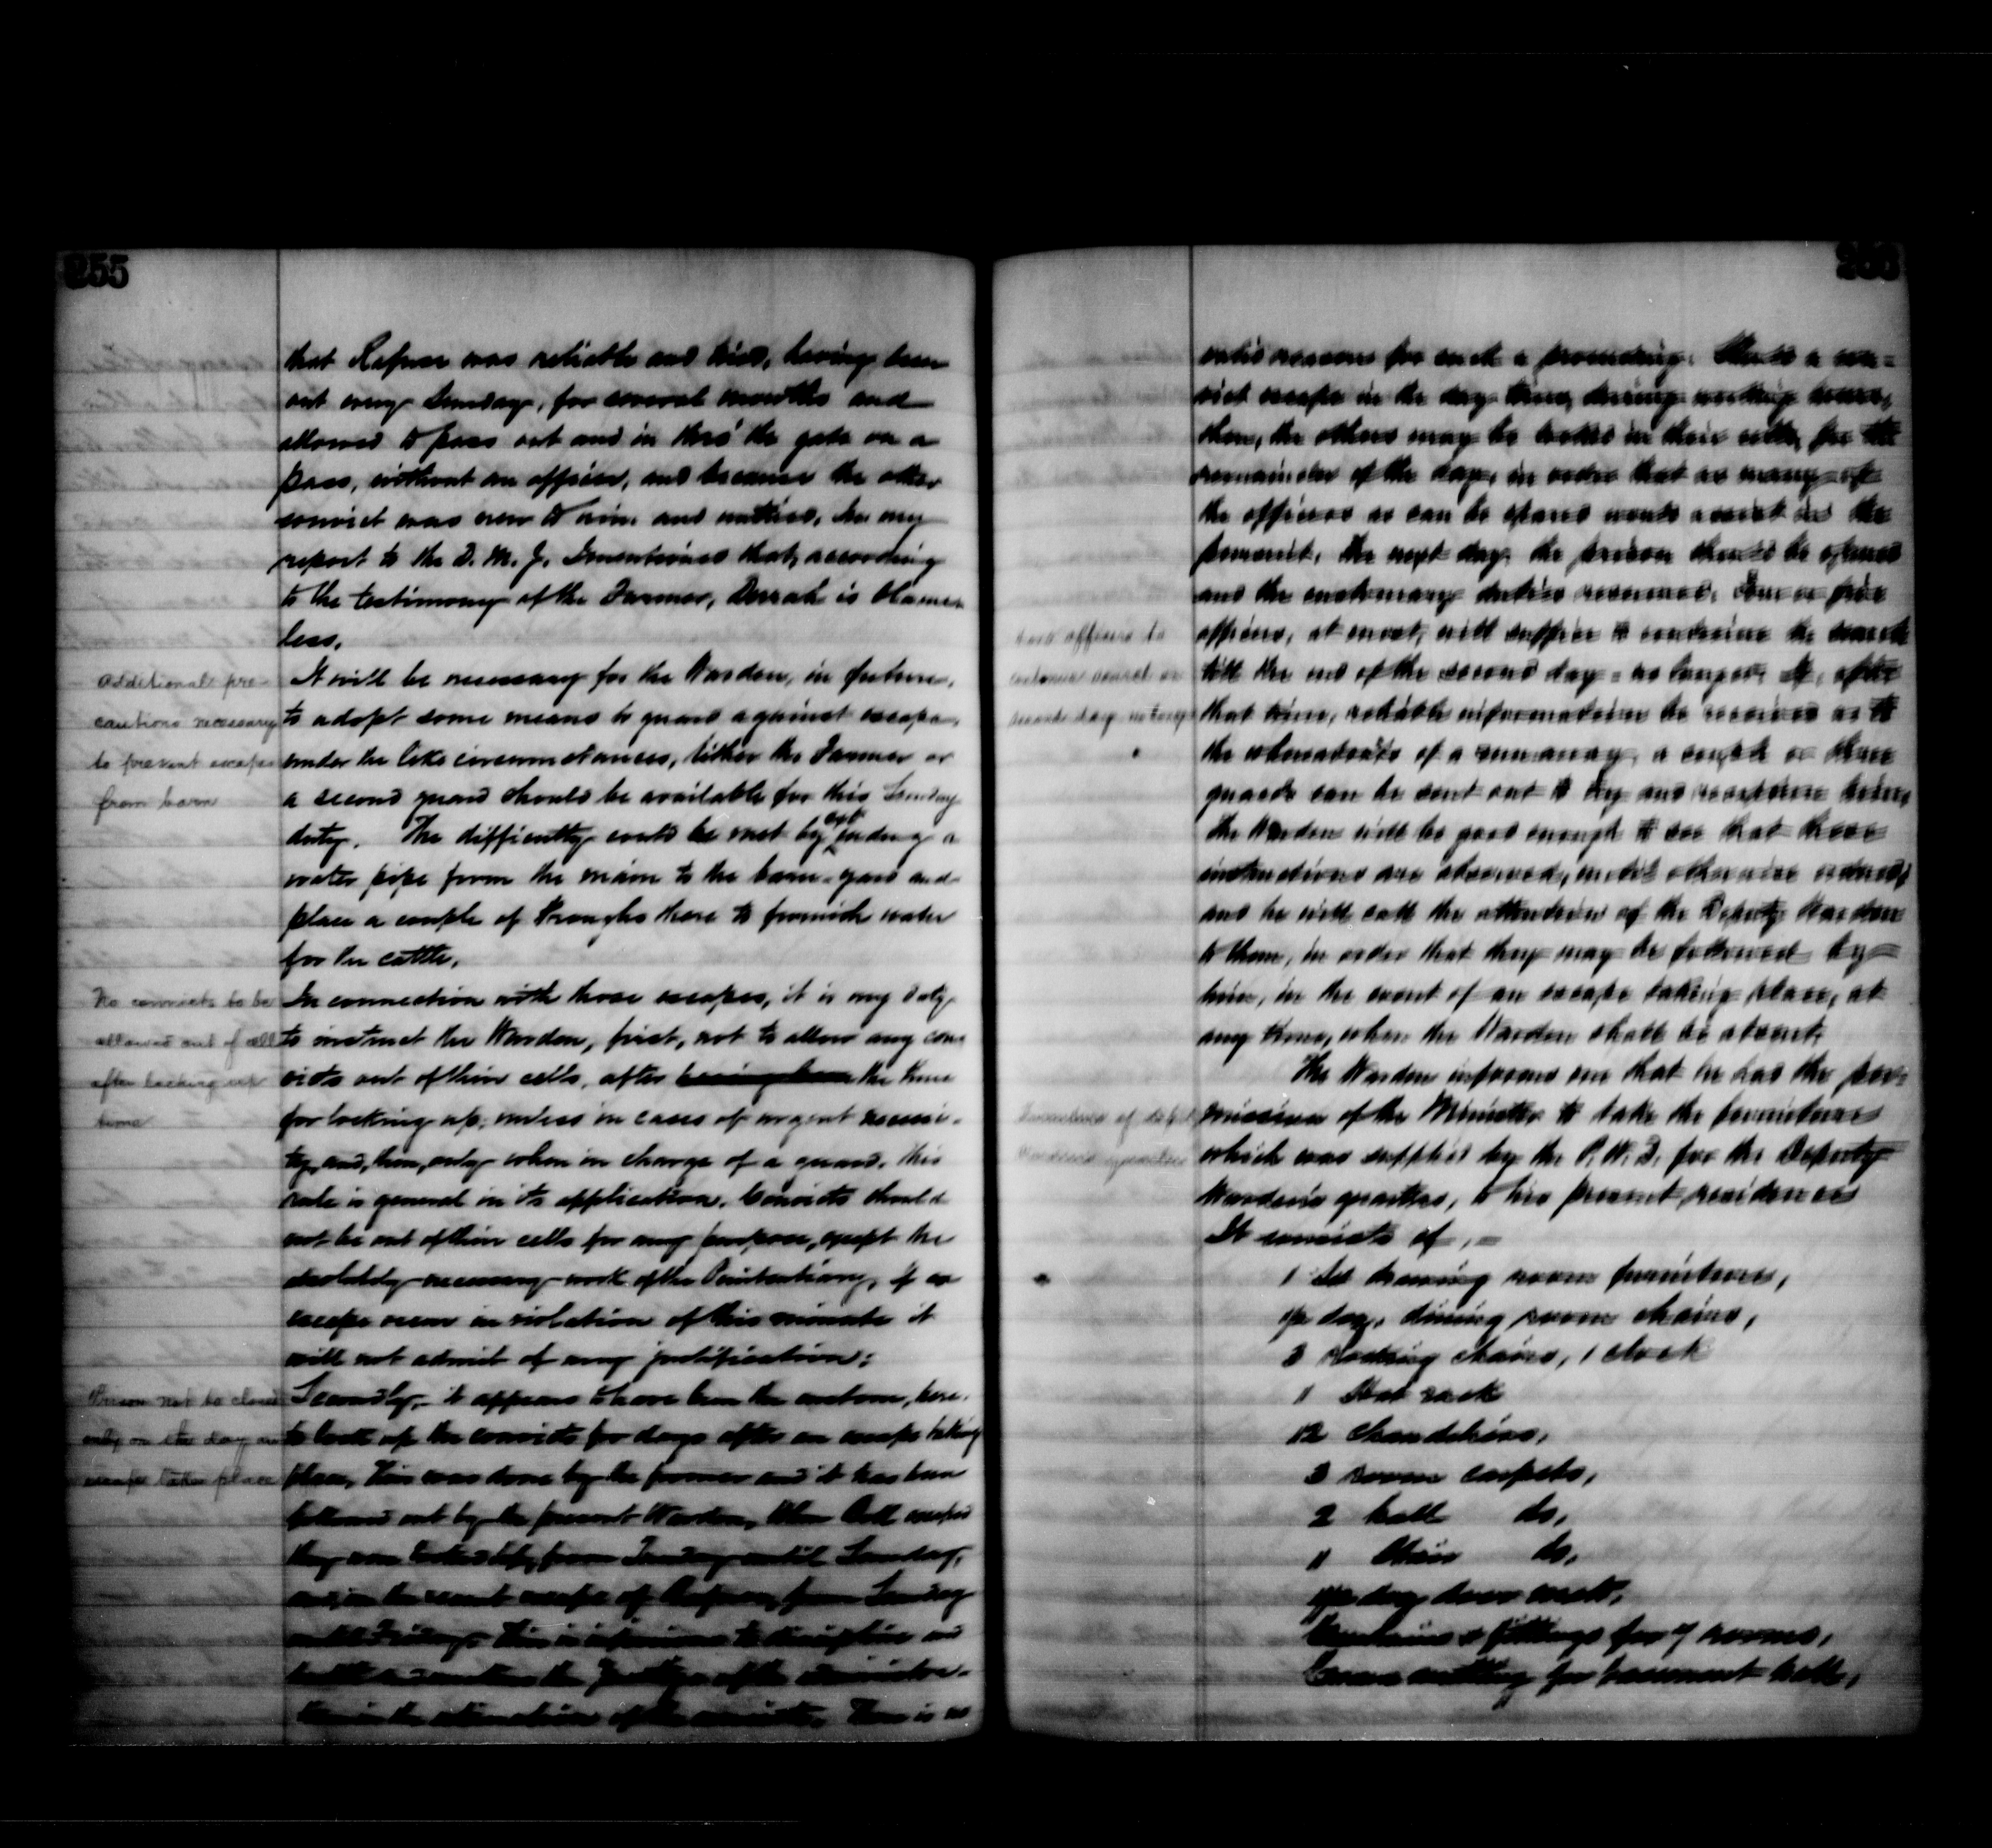 255
that Refner was reliable and tried, having been
out every Sunday, for several months and
allowed to pass out and in thro' the gate on a
pass, without an officer, and because the other
convict was new to him and untried. In my
report to the D. M. J. I mentioned that, according
to the testimony of the Farmer, Darrah is blame-
less.
Additional pre-
cautions necessary
to prevent escapes
from barn
It will be necessary for the Warden, in future,
to adopt some means to guard against escape,
under the like circumstances, either the Farmer or
a second guard should be available for this Sunday
duty. The difficulty could be met by a
water pipe from the main to the barn-yard and
place a couple of troughs there to furnish water
for the cattle.
No convicts to be
allowed out of cell
after locking up
time
In connection with those escapes, it is my duty
to instruct the Warden, first, not to allow any con-
victs out of their cells, after the time
for locking up, unless in cases of urgent necessi-
ty, and, then, only when in charge of a guard. This
rule is general in its application. Convicts should
not be out of their cells for any purpose, except the
absolutely necessary work of the Penitentiary, if an
escape occur in violation of this minute it
will not admit of any justification;
Prison not to be closed
only on the day an
escape takes place
Secondly,- it appears to have been the custom, here,
to lock up the convicts for days after an escape taking
place, This was done by the former and it has been
followed out by the present Warden, When escaped
they were locked up, from Tuesday until Sunday,
and, in the recent escape of from Sunday
until Friday. This is injurious to discipline and
of the administra-
tion in the estimation of the convicts. There is no
valid reason for such a proceeding. Should a con-
vict escape in the day time, during working hours,
then, the others may be locked in their cells, for the
remainder of the day, in order that as many of
the officers as can be spared would assist in the
pursuit. The next day the prison should be opened
and the customary duties resumed. Four or five
officers, at most, will suffice to continue the search
till the end of the second day - no longer. If, after
that time, reliable information be received as to
the whereabouts of a runaway, a couple or three
guards can be sent out to try and recapture him,
The Warden will be good enough to see that these
instructions are observed, until otherwise ordered,
and he will call the attention of the Deputy Warden
to them, in order that they may be followed by
him, in the event of an escape taking place, at
any time, when the Warden shall be absent.
officers to
continue search on
second day no longer
The Warden informs me that he has the per-
mission of the Minister to take the furniture
which was supplied by the P. W. D. for the Deputy
Warden's quarters, to his present residence
It consists of,-
Furniture of Deputy
Warden's quarters
1 Set drawing room furniture,
doz. dining room chairs,
3 rocking chairs, 1 clock
1 Hat rack
12 Chandeliers,
3 room carpets,
2 hall do,
1 Stair do,
doz door mats,
Curtains & fittings for 7 rooms,
Cocoa matting for basement hall,